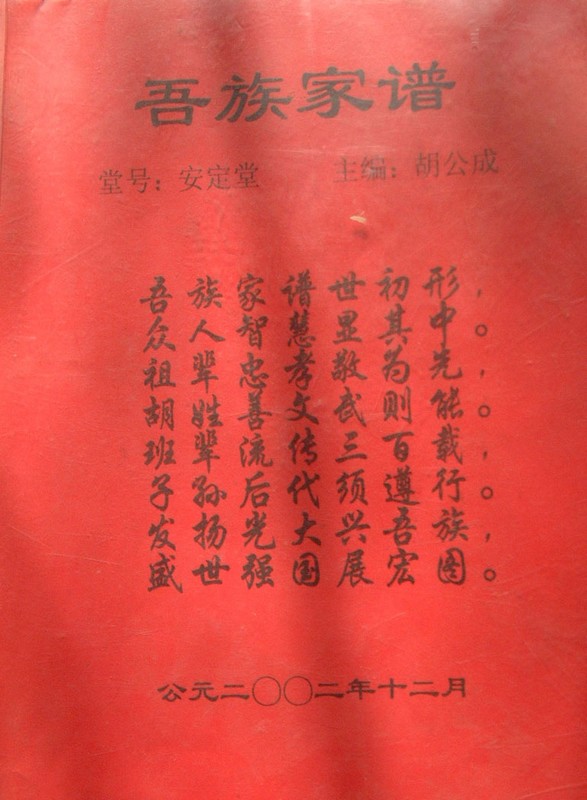 吾族家谱
堂号：安定堂 主编：胡公成
吾族家谱世初形，
众人智慧显其中。
祖辈忠孝敬为先，
胡姓善文武则能。
班辈流传三百载，
子孙后代须遵行。
发扬光大兴吾族，
盛世强国展宏图。
公元二〇〇二年十二月